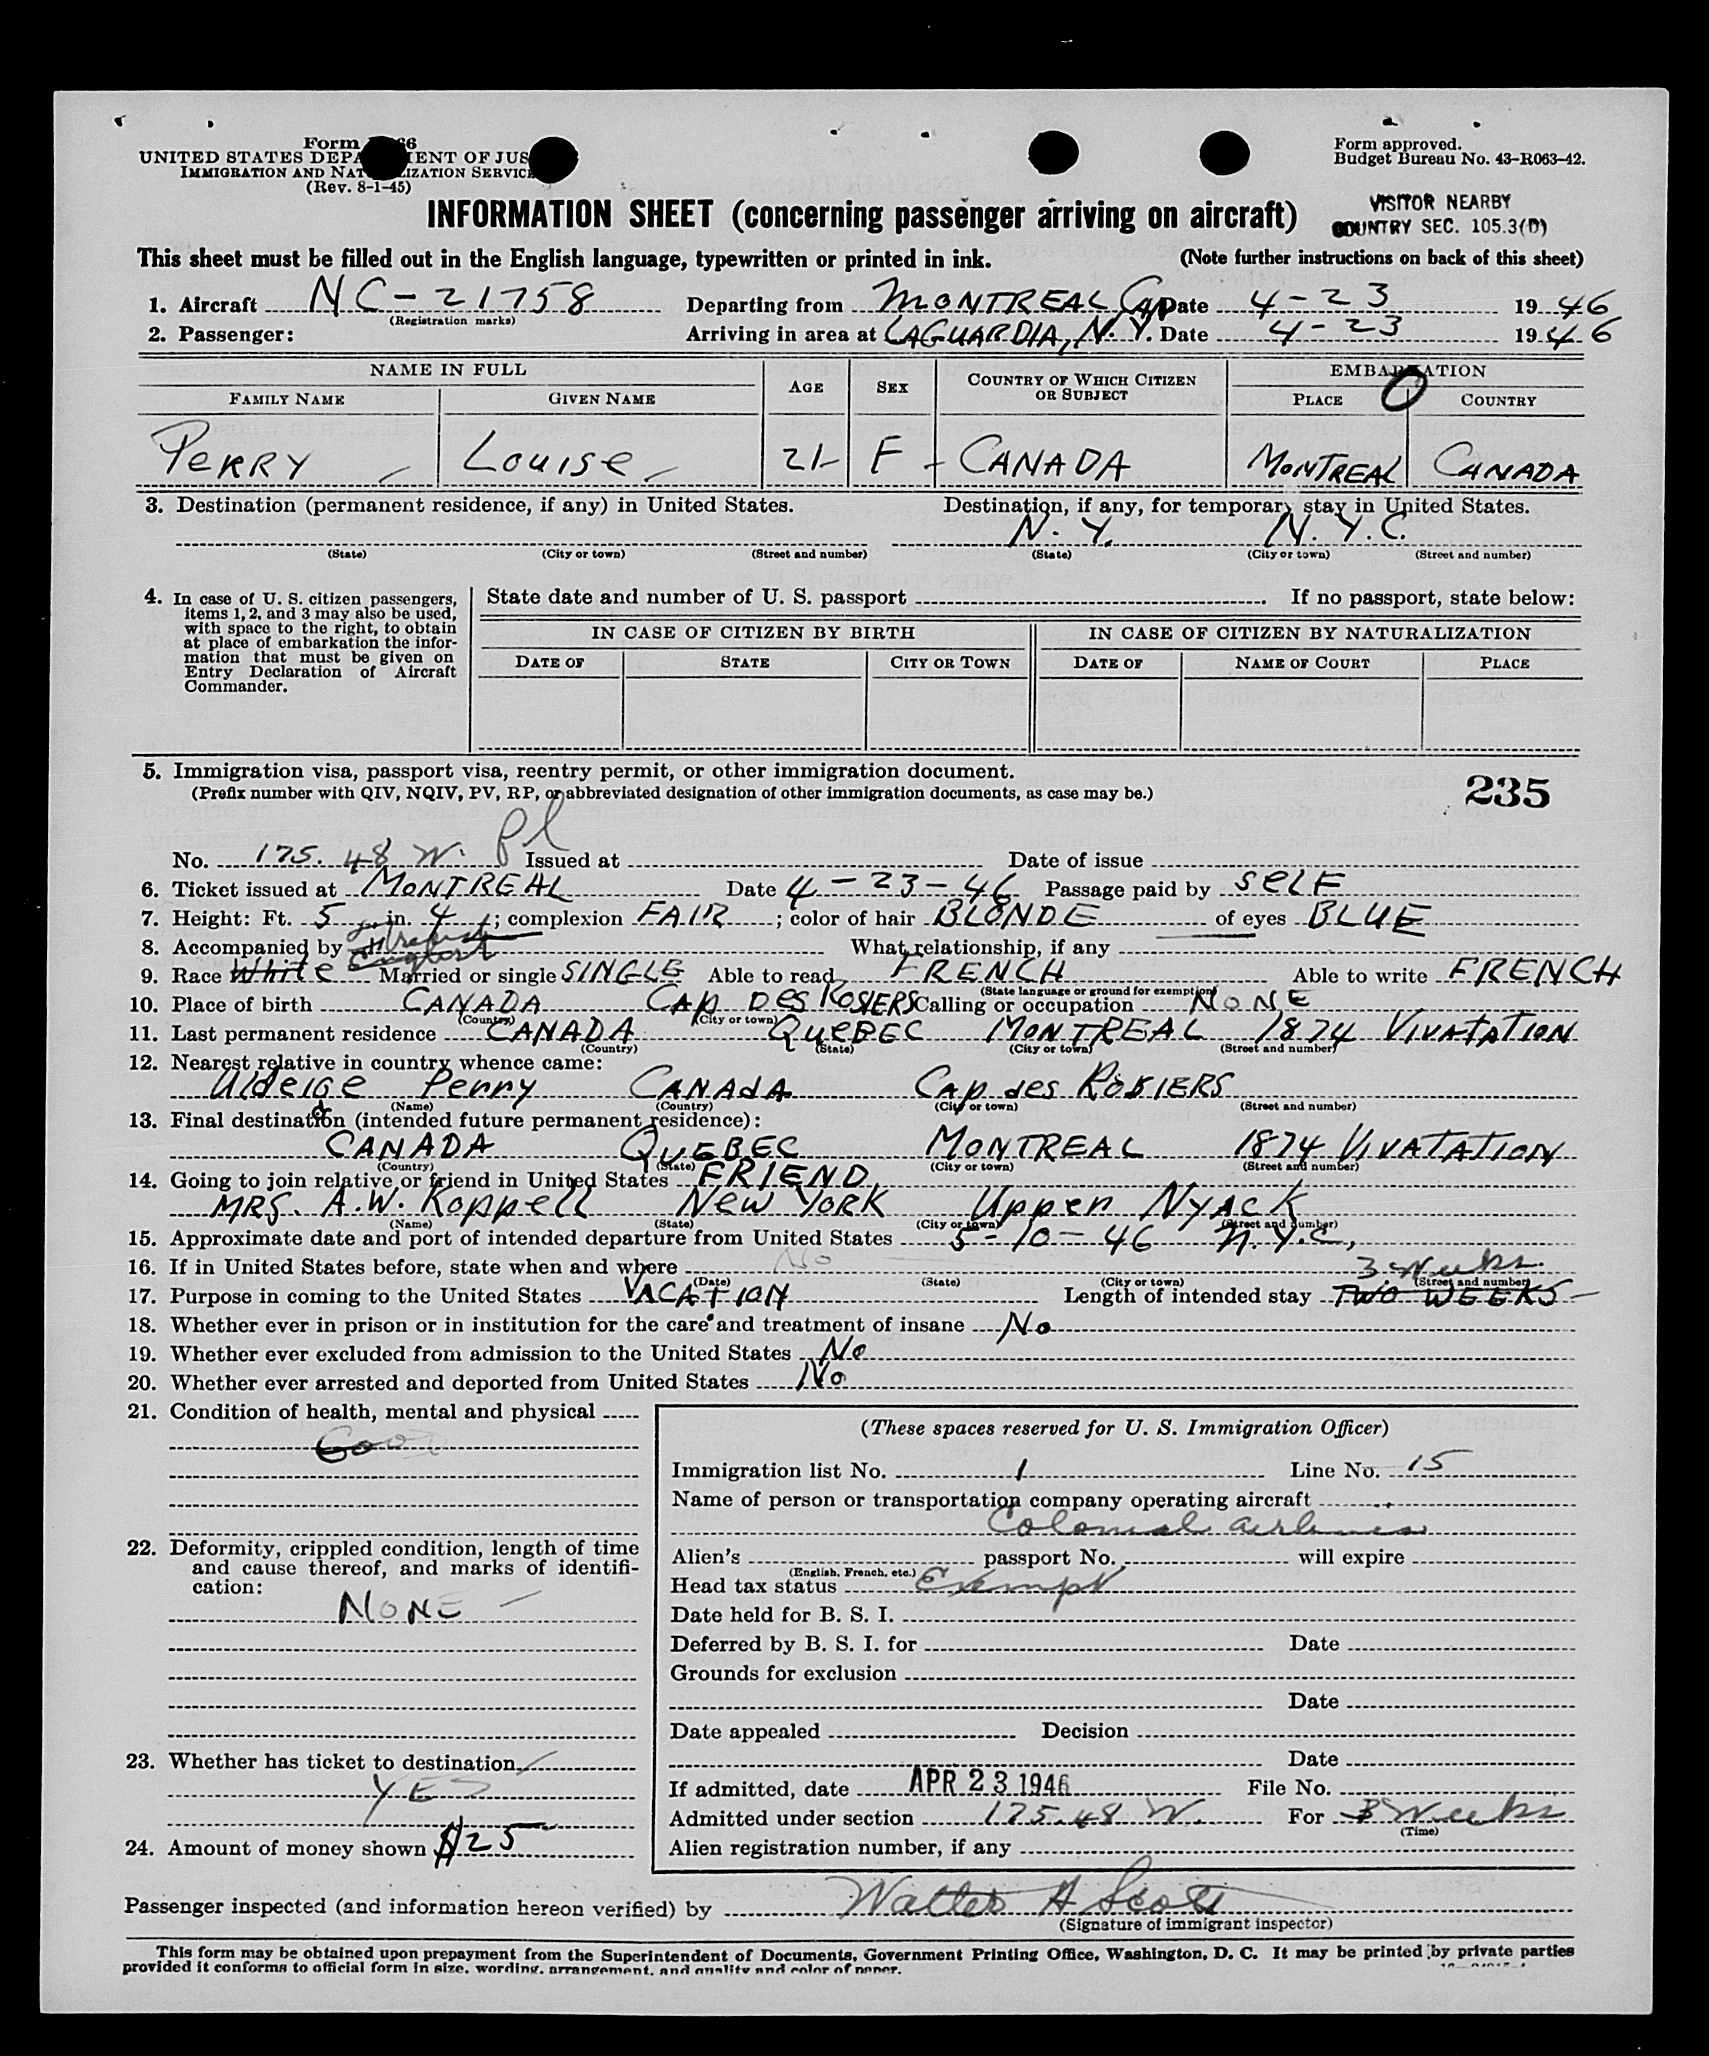 Form 66
UNITED STATES DEPA ENT OF JUS
IMMIGRATION AND NAT IZATION SERVICE
(Rev. 8-1-45)
Form approved.
Budget Bureau No. 43-R063-42.
VISITOR NEARBY
COUNTRY SEC. 105.3(D)
INFORMATION SHEET (concerning passenger arriving on aircraft)
This sheet must be filled out in the English language, typewritten or printed in ink. (Note further instructions on back of this sheet)
1. Aircraft NC-21758 Departing from MONTREAL, CAN Date 4-23 1946
(Registration marks)
2. Passenger: Arriving in area at LAGUARDIA, N.Y. Date 4-23 1946
NAME IN FULL AGE SEX COUNTRY OF WHICH CITIZEN OR SUBJECT EMBARKATION
FAMILY NAME GIVEN NAME PLACE COUNTRY
PERRY LOUISE 21 F CANADA MONTREAL CANADA
3. Destination (permanent residence, if any) in United States. Destination, if any, for temporary stay in United States.
N.Y. N.Y.C.
(State) (City or town) (Street and number) (State) (City or town) (Street and number)
4. In case of U. S. citizen passengers, items 1, 2, and 3 may also be used, with space to the right, to obtain at place of embarkation the information that must be given on Entry Declaration of Aircraft Commander.
State date and number of U. S. passport If no passport, state below:
IN CASE OF CITIZEN BY BIRTH IN CASE OF CITIZEN BY NATURALIZATION
DATE OF STATE CITY OR TOWN DATE OF NAME OF COURT PLACE
5. Immigration visa, passport visa, reentry permit, or other immigration document.
(Prefix number with QIV, NQIV, PV, RP, or abbreviated designation of other immigration documents, as case may be.)
235
No. 175.48 W. Issued at Date of issue
6. Ticket issued at MONTREAL Date 4-23-46 Passage paid by SELF
7. Height: Ft. 5 in. 4; complexion FAIR; color of hair BLONDE of eyes BLUE
8. Accompanied by What relationship, if any
9. Race White English Married or single SINGLE Able to read FRENCH Able to write FRENCH
(State language or ground for exemption)
10. Place of birth CANADA CAP DES ROSIERS Calling or occupation NONE
(Country) (City or town)
11. Last permanent residence CANADA QUEBEC MONTREAL 1874 VIVATATION
(Country) (State) (City or town) (Street and number)
12. Nearest relative in country whence came:
Aldeige Perry CANADA CAP des ROSIERS
(Name) (Country) (City or town) (Street and number)
13. Final destination (intended future permanent residence):
CANADA QUEBEC MONTREAL 1874 VIVATATION
(Country) (State) (City or town) (Street and number)
14. Going to join relative or friend in United States FRIEND
MRS. A.W. Koppell NEW YORK Upper NYACK
(Name) (State) (City or town) (Street and number)
15. Approximate date and port of intended departure from United States 5-10-46 N.Y.C,
16. If in United States before, state when and where No
(Date) (State) (City or town) (Street and number)
3 Weeks
17. Purpose in coming to the United States VACATION Length of intended stay TWO WEEKS
18. Whether ever in prison or in institution for the care and treatment of insane No
19. Whether ever excluded from admission to the United States No
20. Whether ever arrested and deported from United States No
21. Condition of health, mental and physical
Good
22. Deformity, crippled condition, length of time and cause thereof, and marks of identification:
NONE
23. Whether has ticket to destination
YES
24. Amount of money shown $25
(These spaces reserved for U. S. Immigration Officer)
Immigration list No. 1 Line No. 15
Name of person or transportation company operating aircraft
Colonial airlines
Alien's passport No. will expire
(English, French, etc.)
Head tax status Exempt
Date held for B. S. I.
Deferred by B. S. I. for Date
Grounds for exclusion
Date
Date appealed Decision
Date
If admitted, date APR 23 1946 File No.
Admitted under section 175.48 W. For 3 Weeks
(Time)
Alien registration number, if any
Passenger inspected (and information hereon verified) by Walter A Scott
(Signature of immigrant inspector)
This form may be obtained upon prepayment from the Superintendent of Documents, Government Printing Office, Washington, D. C. It may be printed by private parties
provided it conforms to official form in size, wording, arrangement, and quality and color of paper.